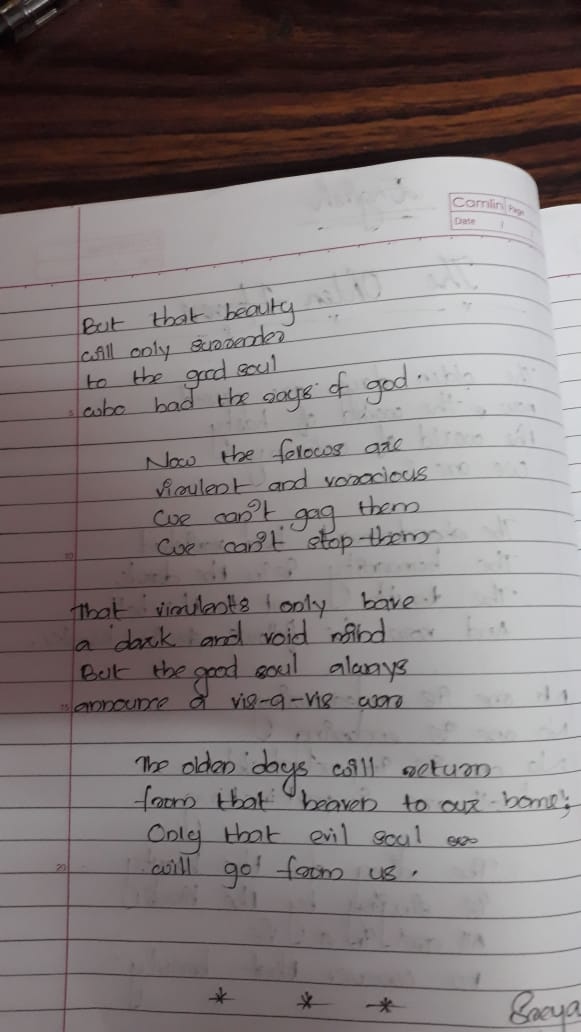 Camlin Page
Date / /
But that beauty
will only surrender
to the good soul
who had the rays of god.
Now the feroces are
virulent and voracious
we can't gag them
we can't stop them
That virulents only have
a dark and void mind
But the good soul always
announce a vis-a-vis war
The olden days will return
from that heaven to our home;
Only that evil soul
will go form us.
* * *
Sreya